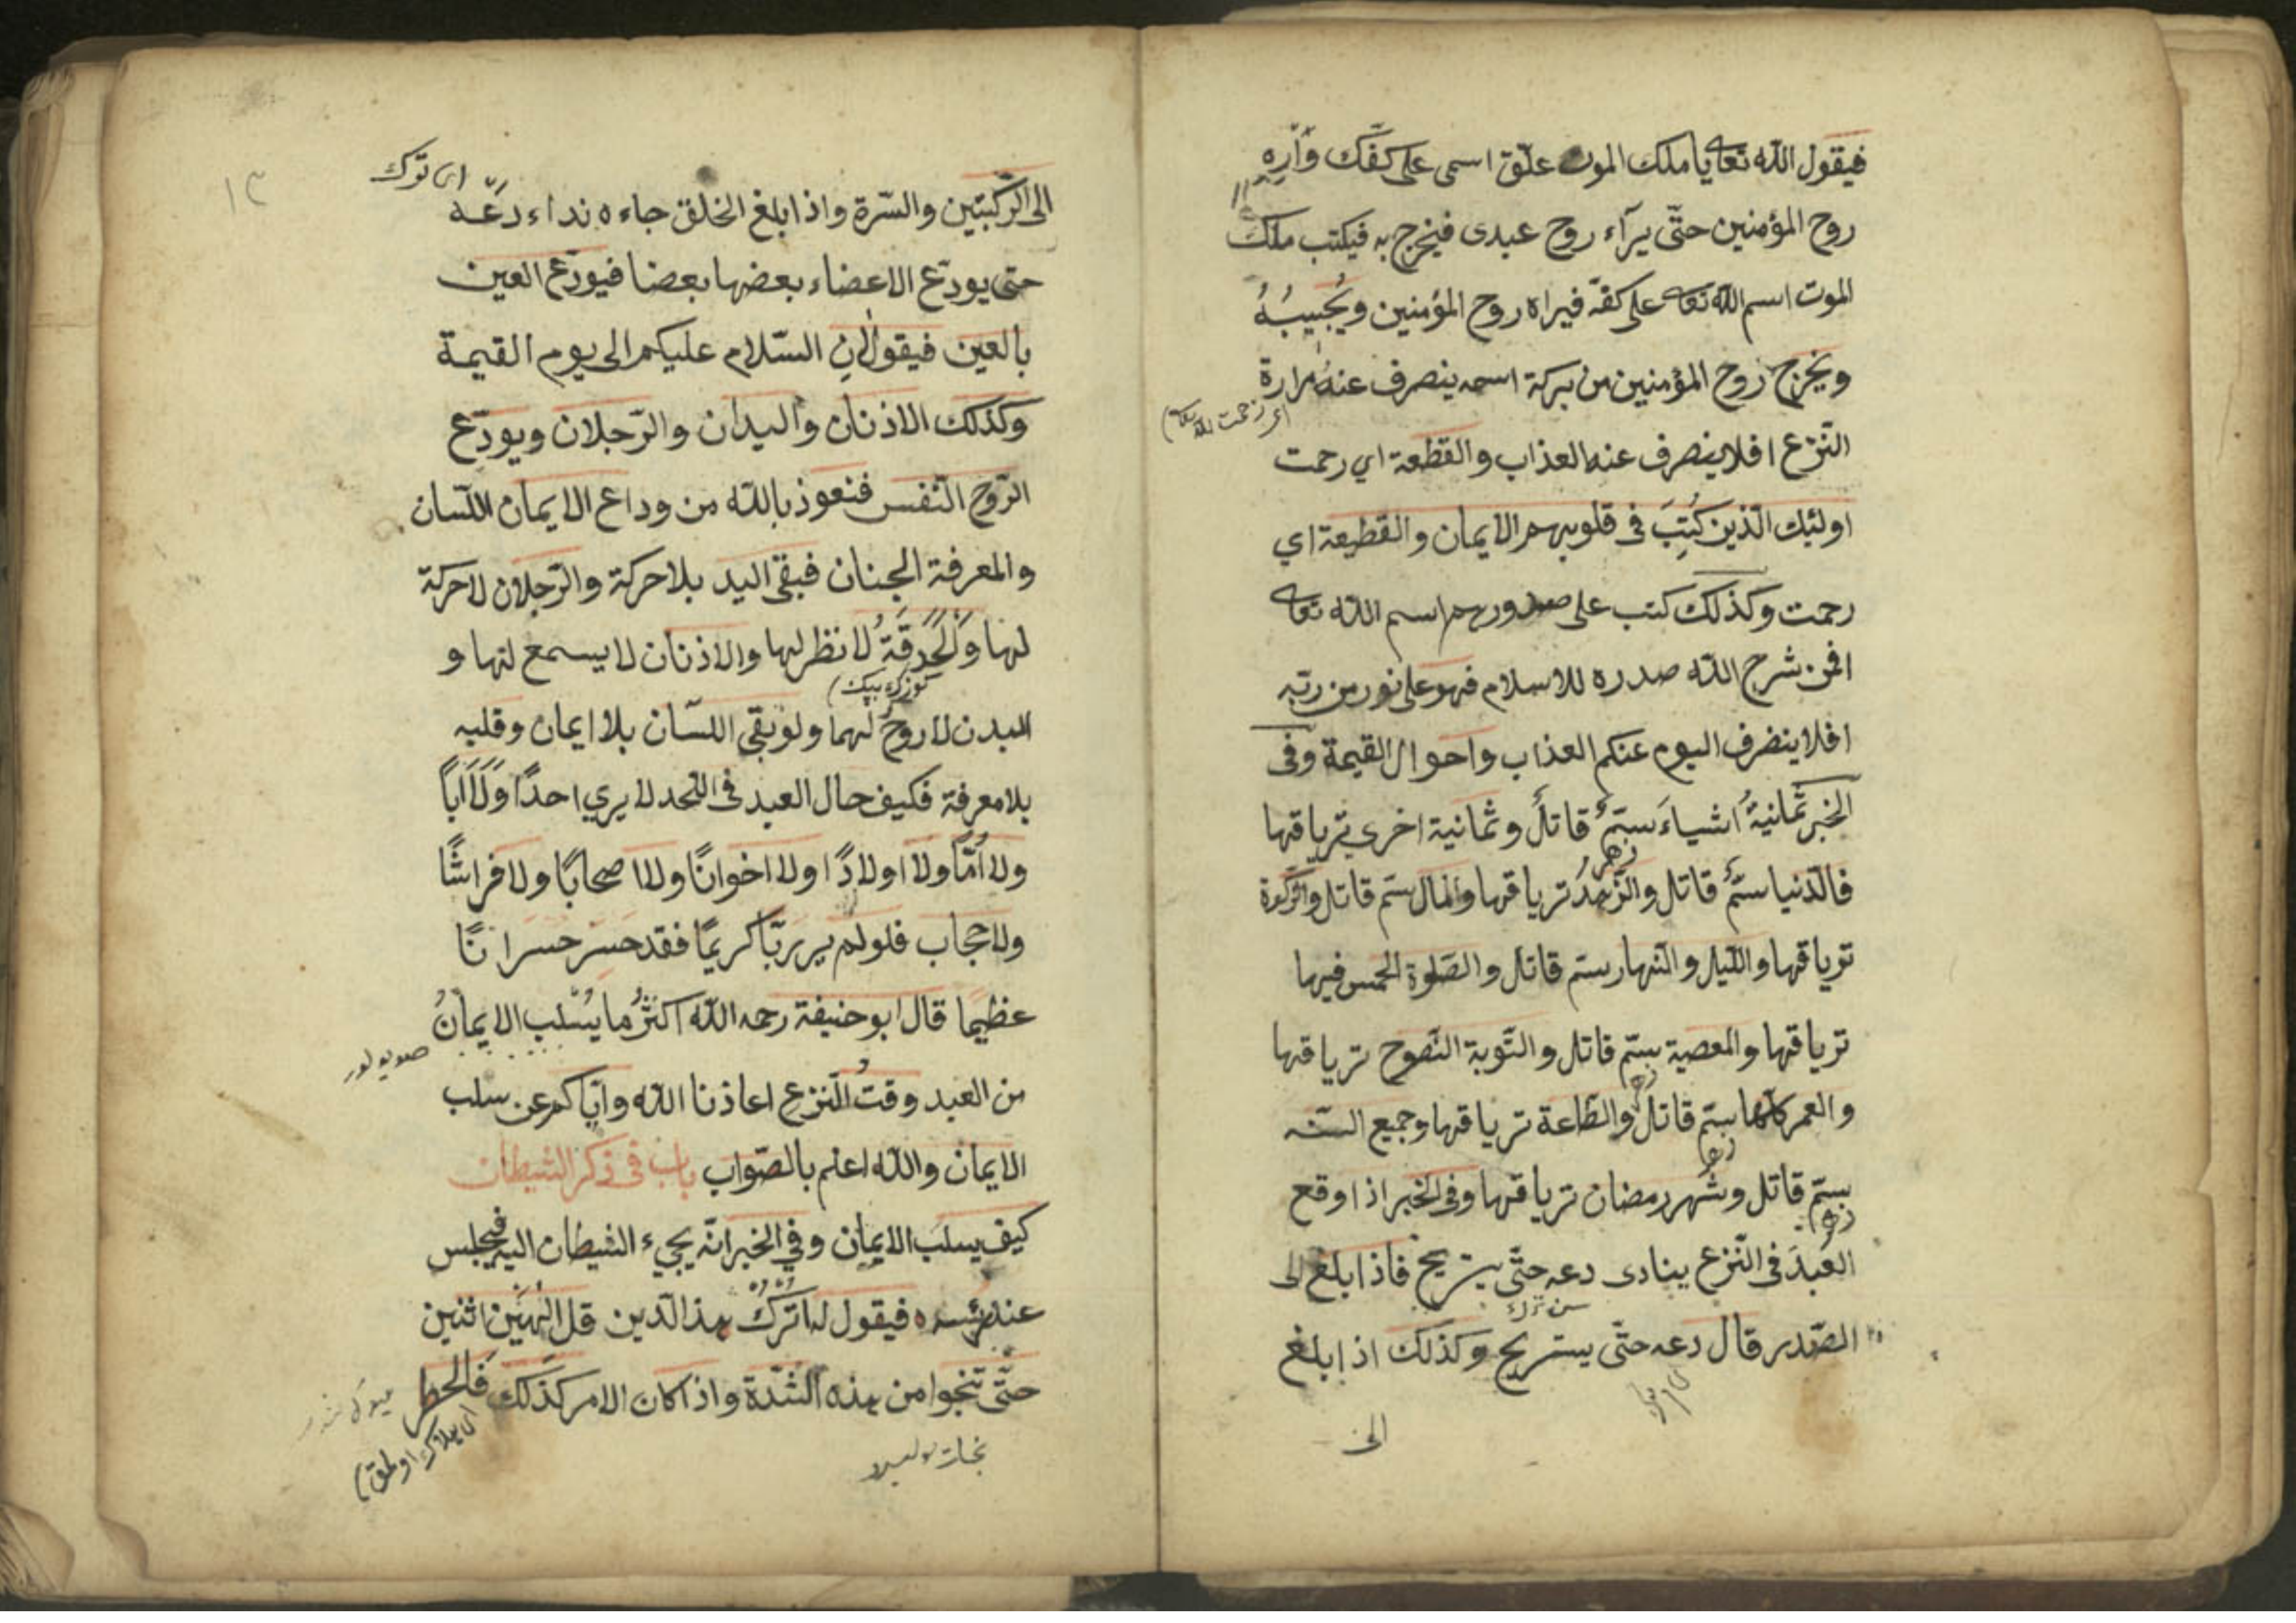 فيقول الله تعا يا ملك الموت علّق اسمى على كفّك وَأَرِهِ
روح المؤمنين حتّى يرآء روح عبدى فيخرج به فيكتب ملك
الموت اسم الله تعا على كفّه فيراه روح المؤمنين ويُجيبُهُ
ويخرج روح المؤمنين من بركة اسمه ينصرف عنهُ مرارة
النّزع افلا ينصرف عنه العذاب والقطعة اي رحمت
اولئك الّذين كُتِبَ فى قلوبهم الايمان والقطيعة اي
رحمت وكذلك كتب على صدورهم اسم الله تعا
افمن شرح الله صدره للاسلام فهو على نور من ربّه
افلا ينصرف اليوم عنكم العذاب واحوال القيمة وفى
الخبر ثمانيةُ اشياءَ سَمٌّ قاتلٌ وثمانية اخرى ترياقها
زهر
فالدّنيا سمٌّ قاتل والزّهدُ ترياقها والمال سمّ قاتل والزّكوة
ترياقها واللّيل والنّهار سم قاتل والصّلوة الخمس فيها
ترياقها والمعصية سمّ قاتل والتّوبة النّصوح ترياقها
والعمر كلّها سمّ قاتل والطّاعة ترياقها وجميع السّنه
سمّ قاتل وشهر رمضان ترياقها وفى الخبر اذا وقع
العبدَ فى النّزع ينادى دعه حتّى يستريح فاذا بلغ الى
سن ترك
الصّدر قال دعه حتّى يستريح وكذلك اذا بلغ
الى
١٣
اى ترك
الى الرّكبتين والسّرة واذا بلغ الخلق جاءه نداء دَعْه
حتى يودّع الاعضاء بعضها بعضا فيودّع العين
بالعين فيقولان السّلام عليكم الى يوم القيمة
وكذلك الاذنان واليدان والرّجلان ويودّع
الرّوح النّفس فنعوذ بالله من وداع الايمان اللّسان
والمعرفة الجنان فبقى اليد بلا حركة والرّجلان لا حركة
لها وَالْحَدَقَةُ لا نظر لها والاذنان لا يسمع لها و
كوزك ببك
البدن لا روحَ لهما ولو بقي اللسّان بلا ايمان وقلبه
بلا معرفة فكيف حال العبد فى اللّحد لا يري احدًا وَلَا اَباً
ولا اُمّاً ولا اولادًا ولا اخوانًا ولا اصحابًا ولا فراشًا
ولا حجاب فلو لم ير ربّا كريمًا فقد خسر خسرانًا
عظيما قال ابو حنيفة رحمه الله اكثرُ ما يُسْلب الايمانُ
صويولور
من العبد وقتُ النّزع اعاذنا الله وايّاكم عن سلب
الايمان والله اعلم بالصّواب باب فى ذكر الشيطان
كيف يسلب الايمان وفي الخبر انّه يجيء الشيطان اليه فيجلس
عند رئسه فيقول له اتركُ هذا الدّين قل الهَيْن اثنين
حتّى تنجوا من هذه الشّدّة واذا كان الامر كذلك فَالخطر
اى هلاك اولمق